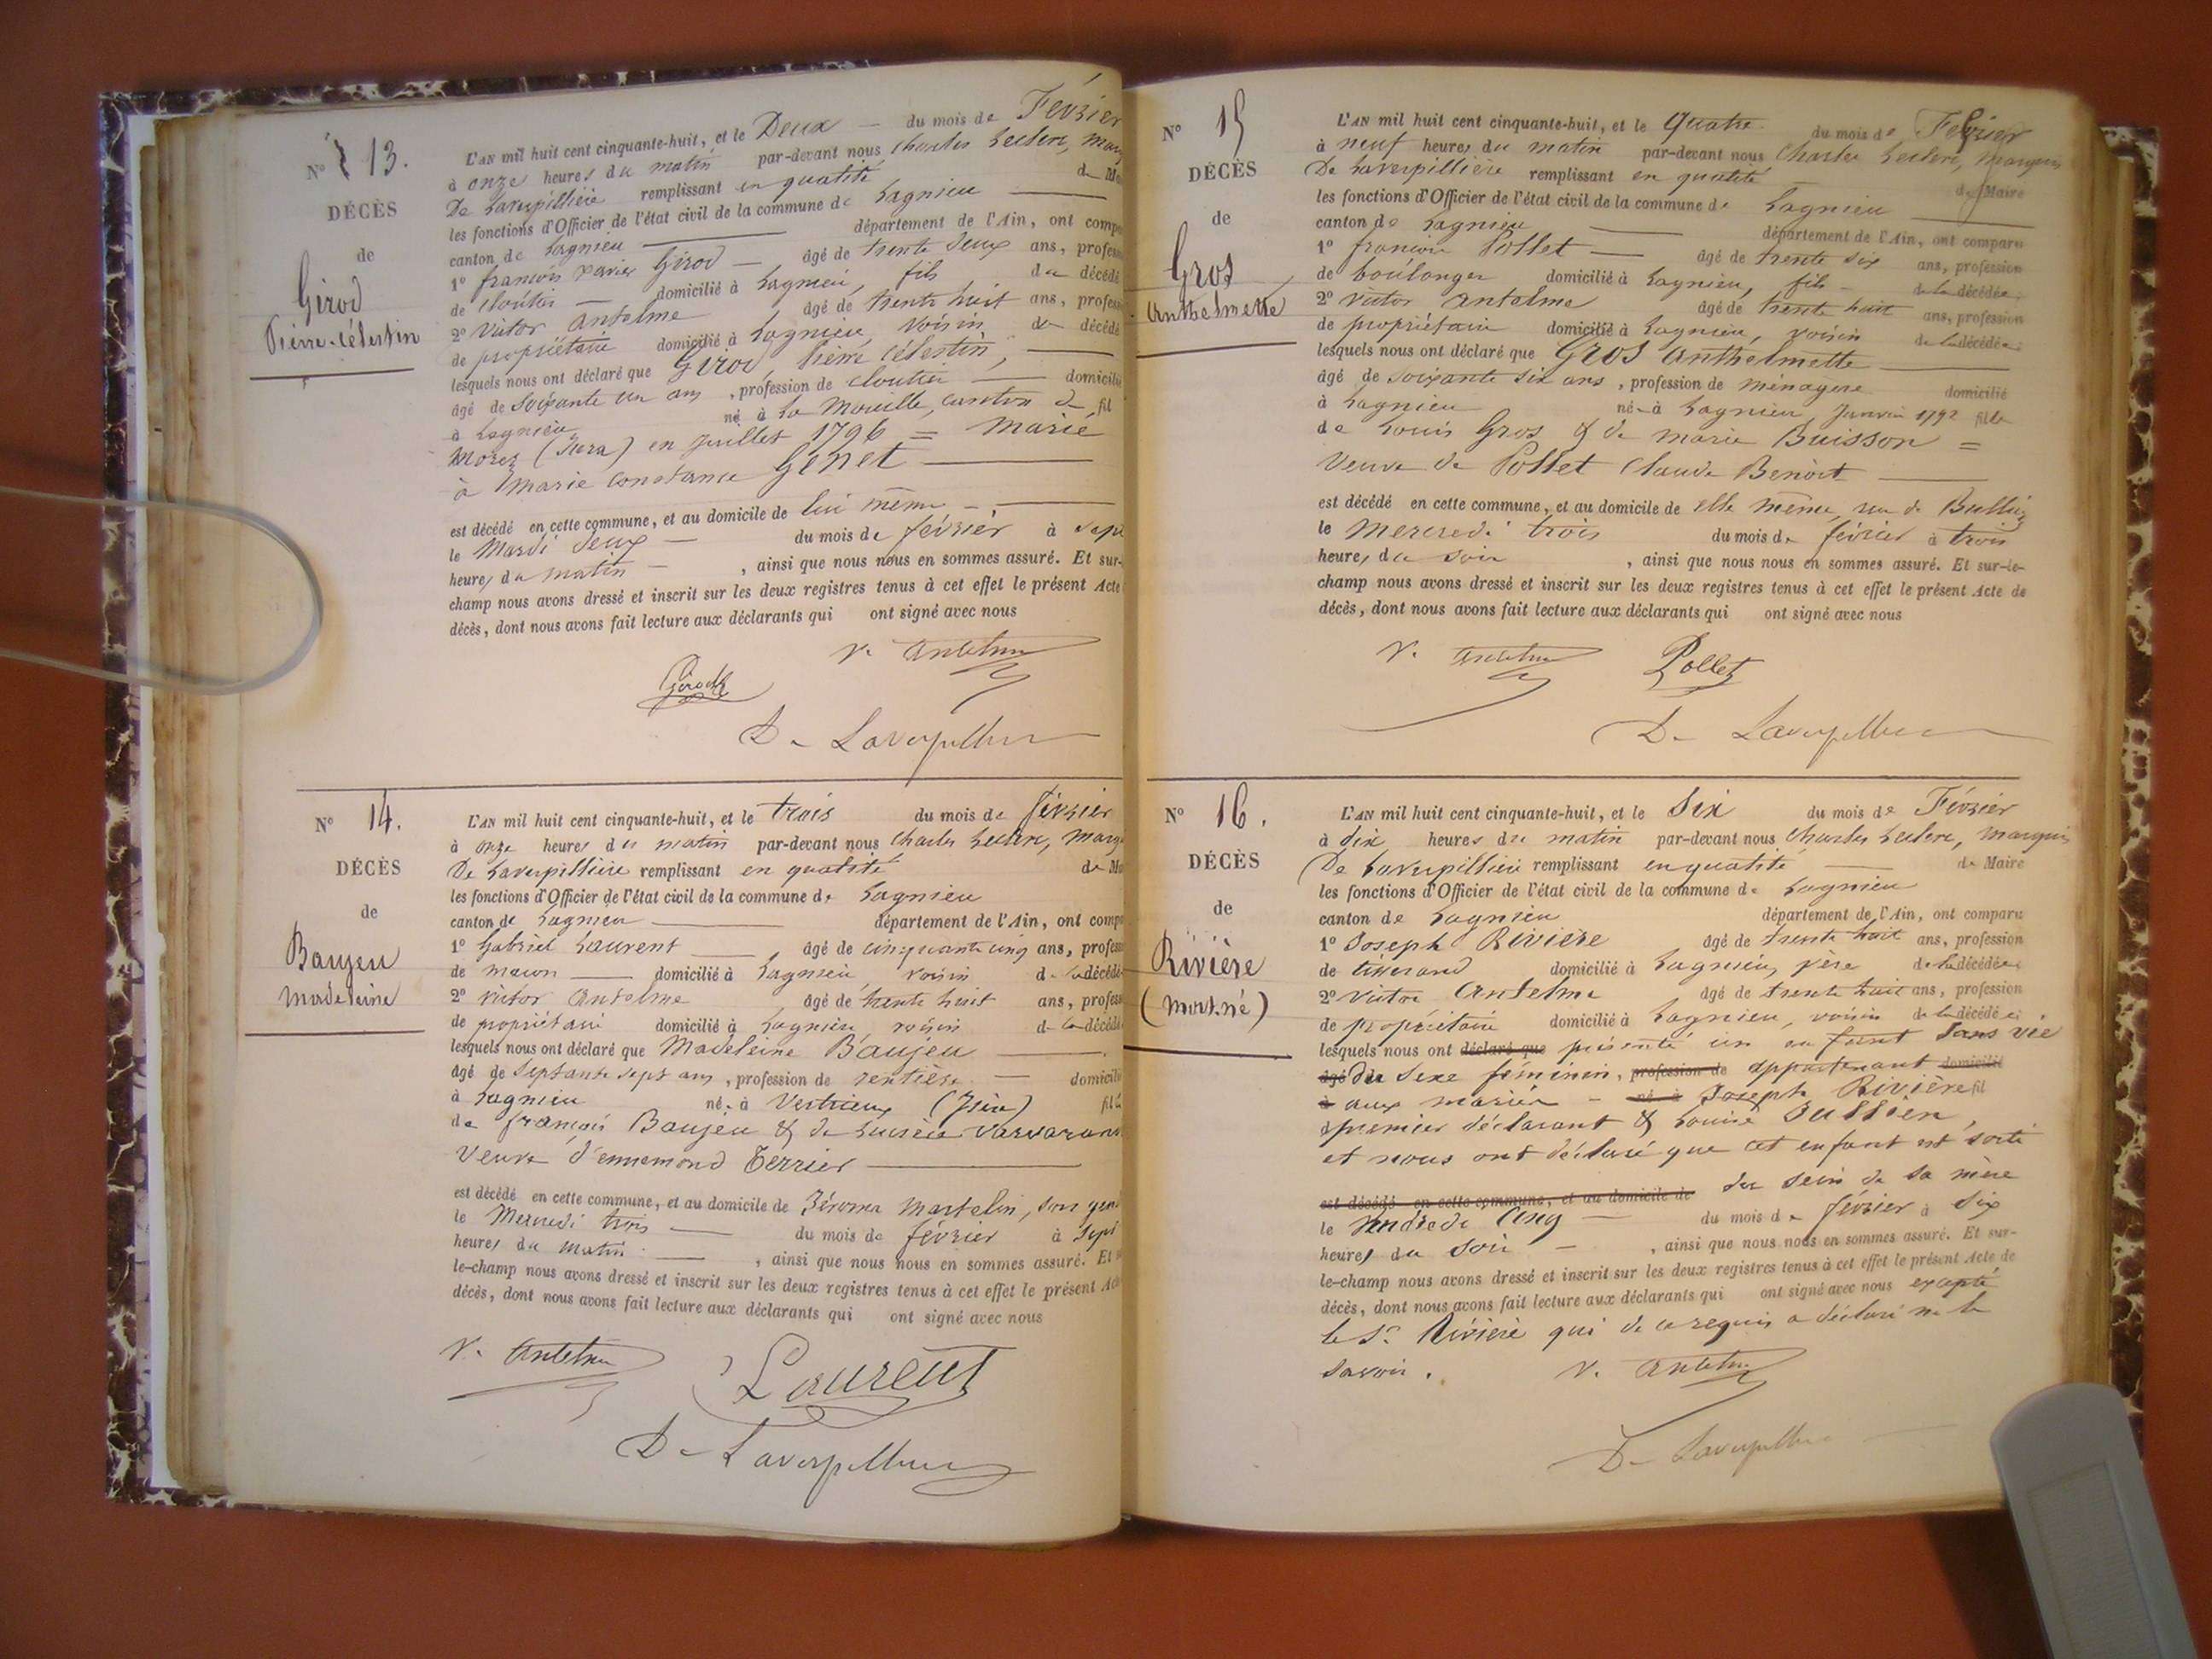 N° 13.
DÉCÈS
de
Girod
Pierre-Célestin
L'AN mil huit cent cinquante-huit, et le Deux — du mois de Février
à onze heures du matin par-devant nous Charles Leclerc, marq
De Laverpillière remplissant en qualité de Ma
les fonctions d'Officier de l'état civil de la commune de Lagnieu —
canton de Lagnieu — département de l'Ain, ont compa
1° françois xavier Girod — âgé de trente deux ans, profess
de cloutier — domicilié à Lagnieu, fils du décédé
2° Victor Anselme âgé de trente huit ans, profess
de propriétaire domicilié à Lagnieu, voisin du décédé
lesquels nous ont déclaré que Girod, Pierre Célestin, —
âgé de soixante un ans, profession de cloutier — domicilié
à Lagnieu né à La Mouille, canton de fil
Morez (Jura) en Juillet 1796 = Marié
à Marie Constance Genet —
est décédé en cette commune, et au domicile de lui même —
le Mardi deux — du mois de février à sept
heures du matin — , ainsi que nous nous en sommes assuré. Et sur-
champ nous avons dressé et inscrit sur les deux registres tenus à cet effet le présent Acte
décès, dont nous avons fait lecture aux déclarants qui ont signé avec nous
V. Anselme
Girod
De Laverpillière
N° 14.
DÉCÈS
de
Baujeu
Madeleine
L'AN mil huit cent cinquante-huit, et le trois du mois de février
à onze heures du matin par-devant nous Charles Leclerc, marq
De Laverpillière remplissant en qualité de Ma
les fonctions d'Officier de l'état civil de la commune de Lagnieu
canton de Lagnieu — département de l'Ain, ont compa
1° Gabriel Laurent — âgé de cinquante cinq ans, profess
de maçon — domicilié à Lagnieu voisin de la décédé
2° Victor Anselme âgé de trente huit ans, profess
de propriétaire domicilié à Lagnieu, voisin de la décédé
lesquels nous ont déclaré que Madeleine Baujeu —
âgé de septante sept ans, profession de rentière — domicilié
à Lagnieu né à Vertrieux (Isère) fille
de françois Baujeu & de
Veuve d'ennemond Terrier —
est décédé en cette commune, et au domicile de Jérome Martelin, son gend
le Mercredi trois — du mois de février à sept
heures du matin — , ainsi que nous nous en sommes assuré. Et
le-champ nous avons dressé et inscrit sur les deux registres tenus à cet effet le présent Acte
décès, dont nous avons fait lecture aux déclarants qui ont signé avec nous
V. Anselme
Laurent
De Laverpillière
N° 15
DÉCÈS
de
Gros
Anthelmette
L'AN mil huit cent cinquante-huit, et le Quatre du mois de Février
à neuf heures du matin par-devant nous Charles Leclerc, marquis
De Laverpillière remplissant en qualité de Maire
les fonctions d'Officier de l'état civil de la commune de Lagnieu —
canton de Lagnieu — département de l'Ain, ont comparu
1° françois Pollet — âgé de trente six ans, profession
de boulanger domicilié à Lagnieu, fils — de la décédée
2° Victor Anselme âgé de trente huit ans, profession
de propriétaire domicilié à Lagnieu, voisin de la décédée
lesquels nous ont déclaré que Gros Anthelmette —
âgé de soixante six ans, profession de ménagère domicilié
à Lagnieu né à Lagnieu, Janvier 1792 fille
de Louis Gros & de marie Buisson =
Veuve de Pollet Claude Benoit —
est décédé en cette commune, et au domicile de elle même, rue de
le Mercredi trois du mois de février à trois
heures du soir , ainsi que nous nous en sommes assuré. Et sur-le-
champ nous avons dressé et inscrit sur les deux registres tenus à cet effet le présent Acte de
décès, dont nous avons fait lecture aux déclarants qui ont signé avec nous
V. Anselme Pollet
De Laverpillière
N° 16.
DÉCÈS
de
Rivière
(mort-né)
L'AN mil huit cent cinquante-huit, et le Six du mois de Février
à dix heures du matin par-devant nous Charles Leclerc, marquis
De Laverpillière remplissant en qualité — de Maire
les fonctions d'Officier de l'état civil de la commune de Lagnieu
canton de Lagnieu département de l'Ain, ont comparu
1° Joseph Rivière âgé de trente huit ans, profession
de tisserand domicilié à Lagnieu, père de la décédée
2° Victor Anselme âgé de trente huit ans, profession
de propriétaire domicilié à Lagnieu, voisin de la décédée
lesquels nous ont déclaré que présenté un enfant sans vie
âgé du sexe féminin, profession de appartenant domicilié
à aux mariés — né à Joseph Rivière fil
premier déclarant & Louise Jullien,
et nous ont déclaré que cet enfant est sorti
est décédé en cette commune, et au domicile de du sein de sa mère
le vendredi cinq — du mois de février à six
heures du soir — , ainsi que nous nous en sommes assuré. Et sur-
le-champ nous avons dressé et inscrit sur les deux registres tenus à cet effet le présent Acte de
décès, dont nous avons fait lecture aux déclarants qui ont signé avec nous excepté
le Sr Rivière qui de ce requis a déclaré ne le
savoir. V. Anselme
De Laverpillière